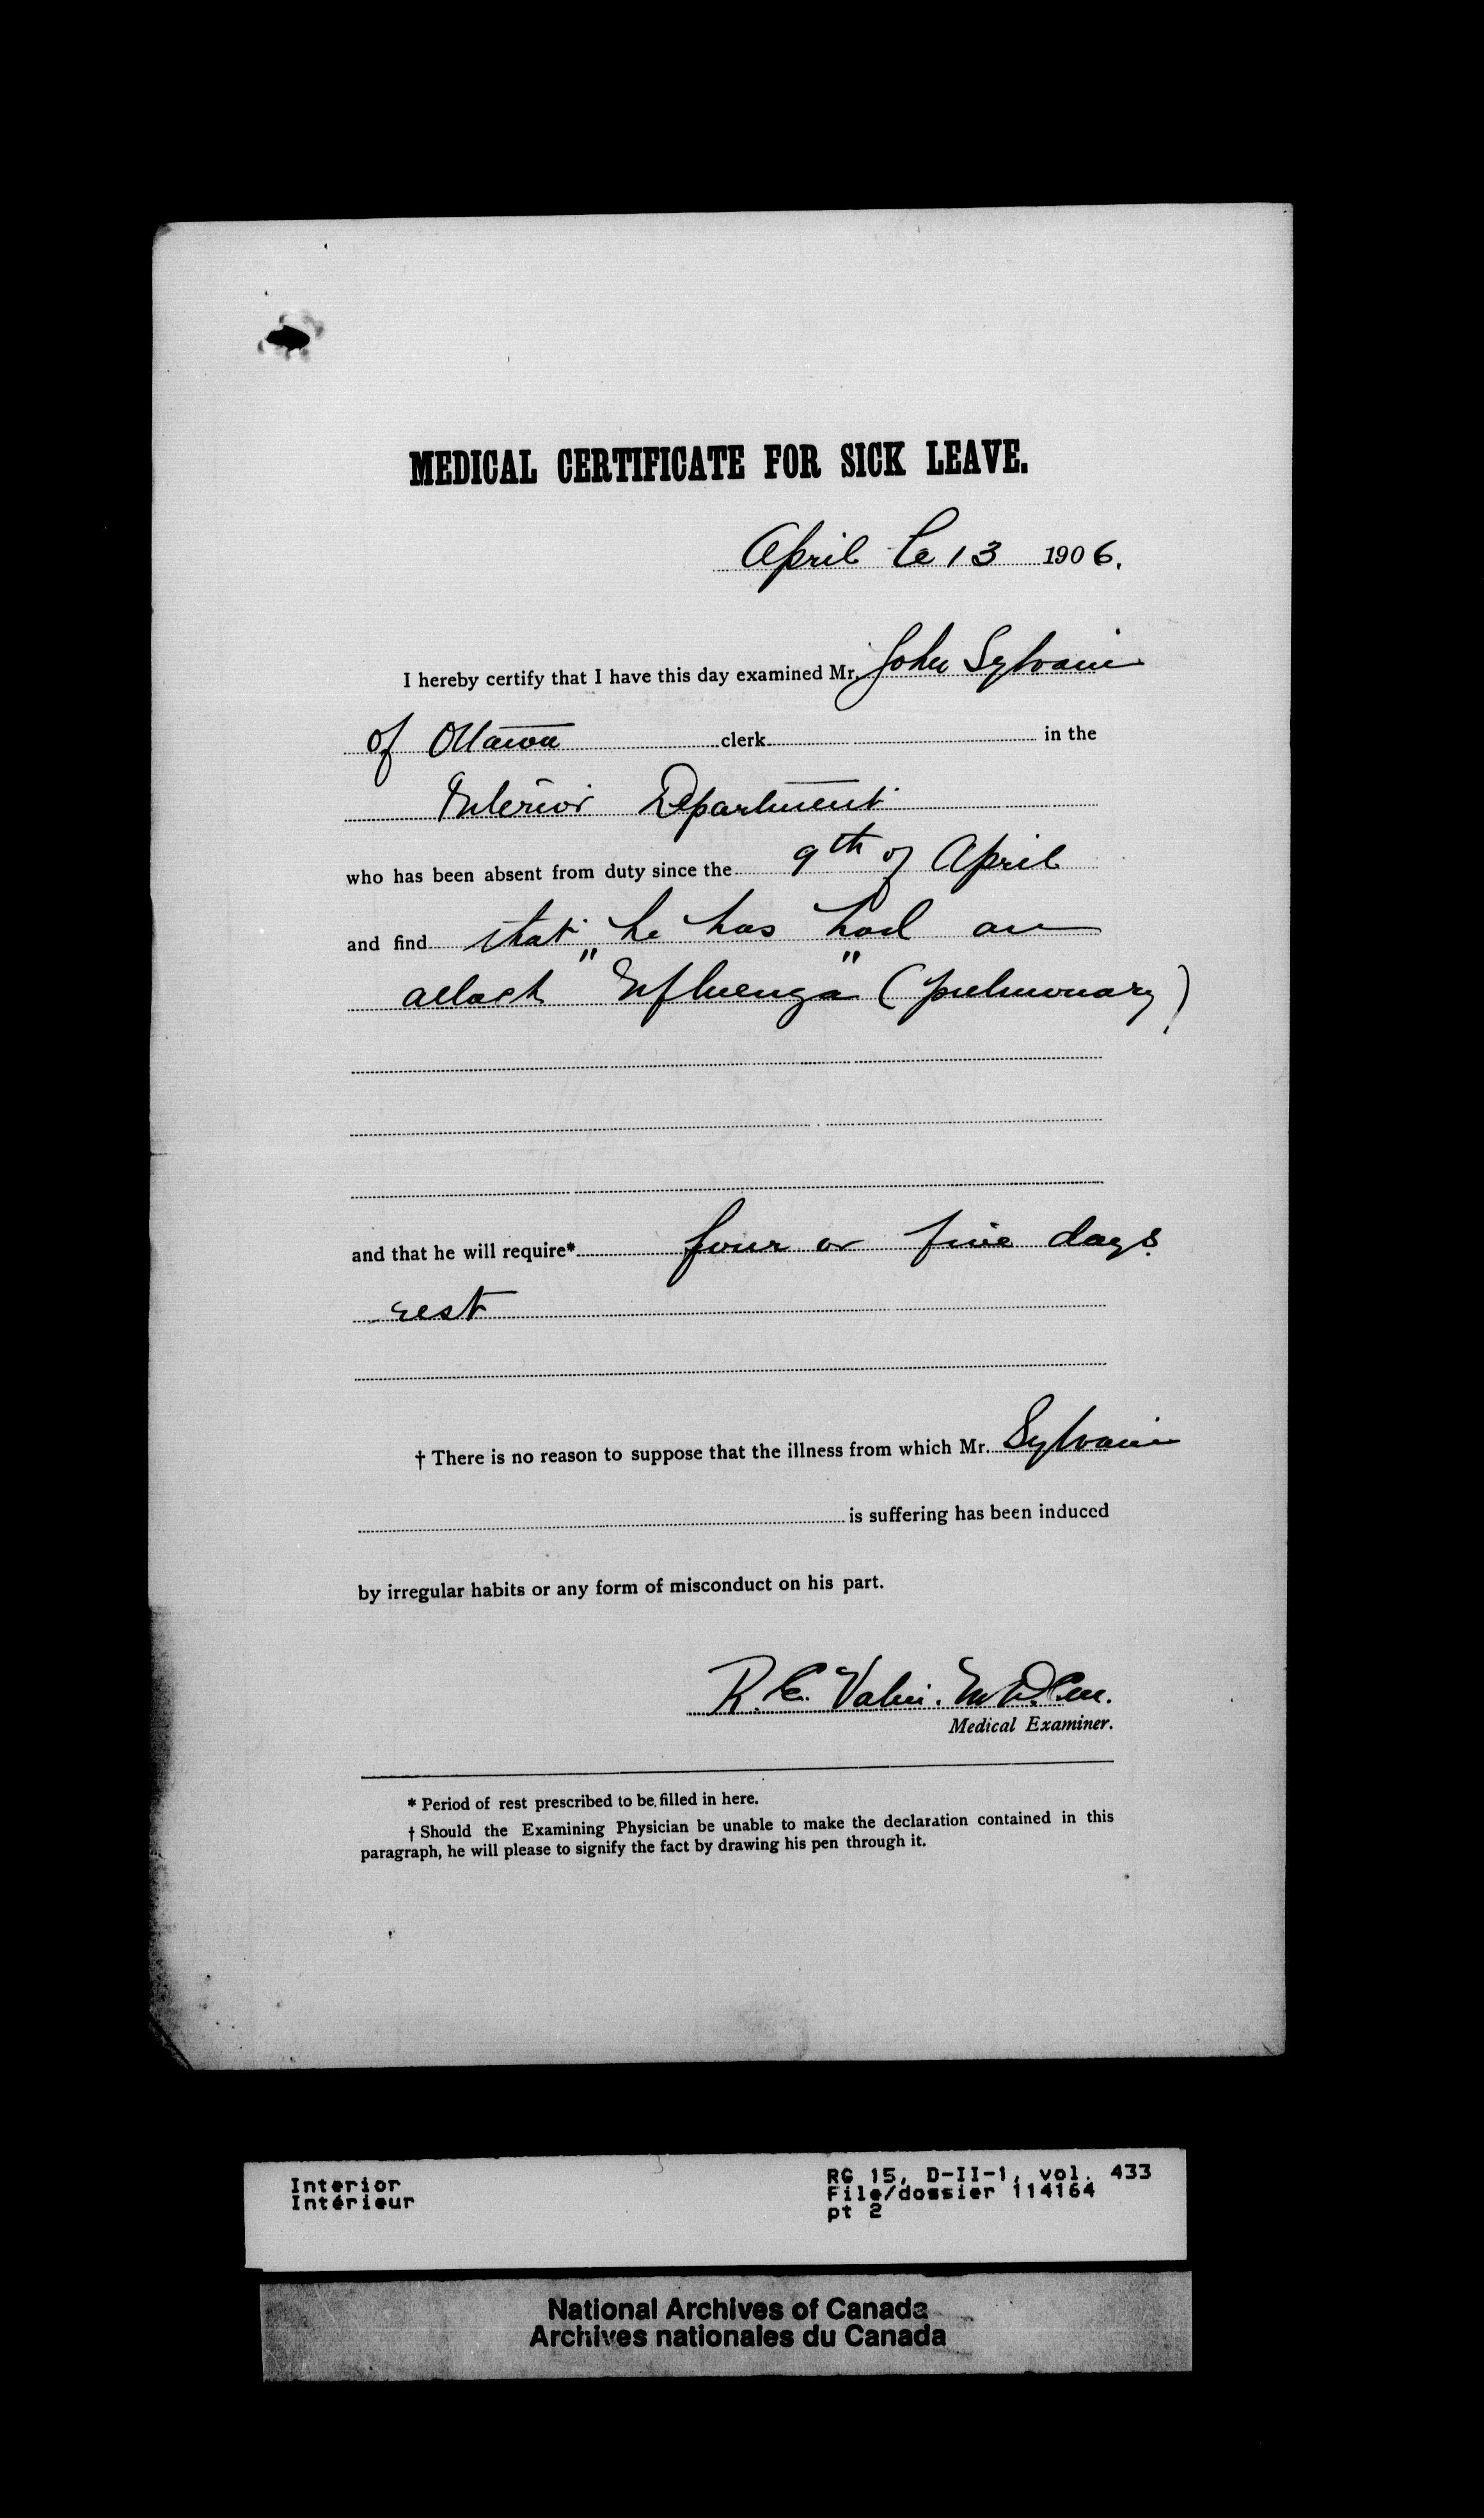 MEDICAL CERTIFICATE FOR SICK LEAVE.
April le 13 1906.
I hereby certify that I have this day examined Mr. John Sylvain
of Ottawa clerk in the
Interior Department
who has been absent from duty since the 9th of April
and find that he has had an
attack "Influenza" (pulmonary)
and that he will require* four or five days
rest
† There is no reason to suppose that the illness from which Mr. Sylvain
is suffering has been induced
by irregular habits or any form of misconduct on his part.
R. E. Valin. M.D.
Medical Examiner.
* Period of rest prescribed to be filled in here.
† Should the Examining Physician be unable to make the declaration contained in this
paragraph, he will please to signify the fact by drawing his pen through it.
Interior
Intérieur
RG 15, D-II-1, vol. 433
File/dossier 114164
pt 2
National Archives of Canada
Archives nationales du Canada